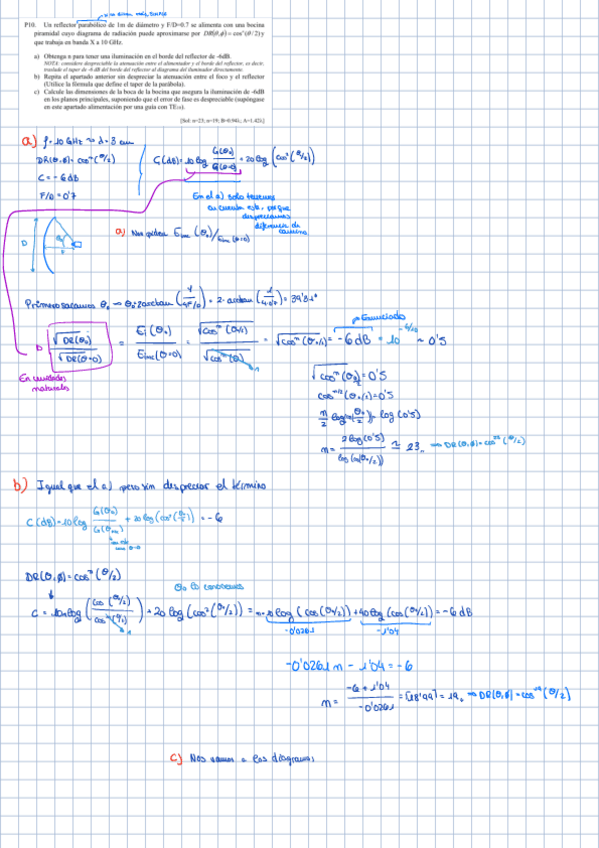 P10. Un reflector parabólico de 1m de diámetro y F/D=0.7 se alimenta con una bocina
piramidal cuyo diagrama de radiación puede aproximarse por DR(θ,ϕ)=cosⁿ(θ/2) y
que trabaja en banda X a 10 GHz.
a) Obtenga n para tener una iluminación en el borde del reflector de -6dB.
NOTE: considere despreciable la atenuación entre el alimentador y el borde del reflector, es decir,
traslade el taper de -6 dB del borde del reflector al diagrama del iluminador directamente.
b) Repita el apartado anterior sin despreciar la atenuación entre el foco y el reflector
(Utilice la fórmula que define el taper de la parábola).
c) Calcule las dimensiones de la boca de la bocina que asegura la iluminación de -6dB
en los planos principales, suponiendo que el error de fase es despreciable (supóngase
en este apartado alimentación por una guía con TE₁₀).
[Sol: n=23; n=19; B=0.94λ; A=1.42λ]
a) f=10 GHz → λ=3 cm
DR(θ,ϕ)=cosⁿ(θ/2)
C=-6dB
F/D=0'7
C(dB)=10log G(θ₀)/G(θ=0) + 20log(cos²(θ/2))
En el a) solo tenemos
en cuenta este, porque
despreciamos
diferencia de
camino
a) Nos piden Einc(θ₀)/Einc(θ=0)
D
Primero sacamos θ₀ → θ₀=2arctan(1/4F/D) = 2·arctan(1/4·0'7) = 39'31°
√DR(θ₀)/√DR(θ=0) = Ei(θ₀)/Einc(θ=0) = √cosⁿ(θ₀/2)/√cosⁿ(0) = √cosⁿ(θ₀/2) = -6dB = 10^(-6/20) ~ 0'5
Enunciado
1
En unidades
naturales
√cosⁿ(θ₀/2)=0'5
cos^(n/2)(θ₀/2)=0'5
n/2 log(cos(θ₀/2))=log(0'5)
n= 2log(0'5)/log(cos(θ₀/2)) ≃ 23 → DR(θ,ϕ)=cos²³(θ/2)
b) Igual que el a) pero sin despreciar el término
C(dB)=10log G(θ₀)/G(θ) + 20log(cos²(θ/2)) = -6
DR(θ,ϕ)=cosⁿ(θ/2)
θ₀ la conocemos
C = 10nlog(cos(θ₀/2)/cos(0/2)) + 20log(cos²(θ₀/2)) = n·10log(cos(θ₀/2)) + 40log(cos(θ₀/2)) = -6dB
1
-0'0261
-1'04
-0'0261n - 1'04 = -6
n= -6+1'04/-0'0261 = [18'99] = 19 → DR(θ,ϕ)=cos¹⁹(θ/2)
c) Nos vamos a los diagramas